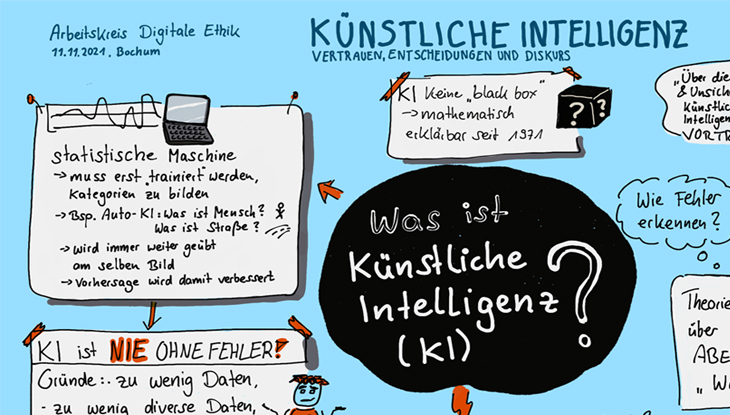 Arbeitskreis Digitale Ethik
11.11.2021, Bochum
KÜNSTLICHE INTELLIGENZ
VERTRAUEN, ENTSCHEIDUNGEN UND DISKURS
KI keine "black box"
→ mathematisch
erklärbar seit 1971
? ?
"Über die
& Unsich
Künstlic
Intelligen
VORTR
statistische Maschine
→ muss erst "trainiert" werden,
Kategorien zu bilden
→ Bsp. Auto-KI: Was ist Mensch?
Was ist Straße?
→ wird immer weiter geübt
am selben Bild
→ Vorhersage wird damit verbessert
Was ist
Künstliche
Intelligenz
(KI)
?
Wie Fehler
erkennen?
Theorie
über
ABE
"Wi
KI ist NIE OHNE FEHLER!
Gründe: - zu wenig Daten,
- zu wenig diverse Daten,